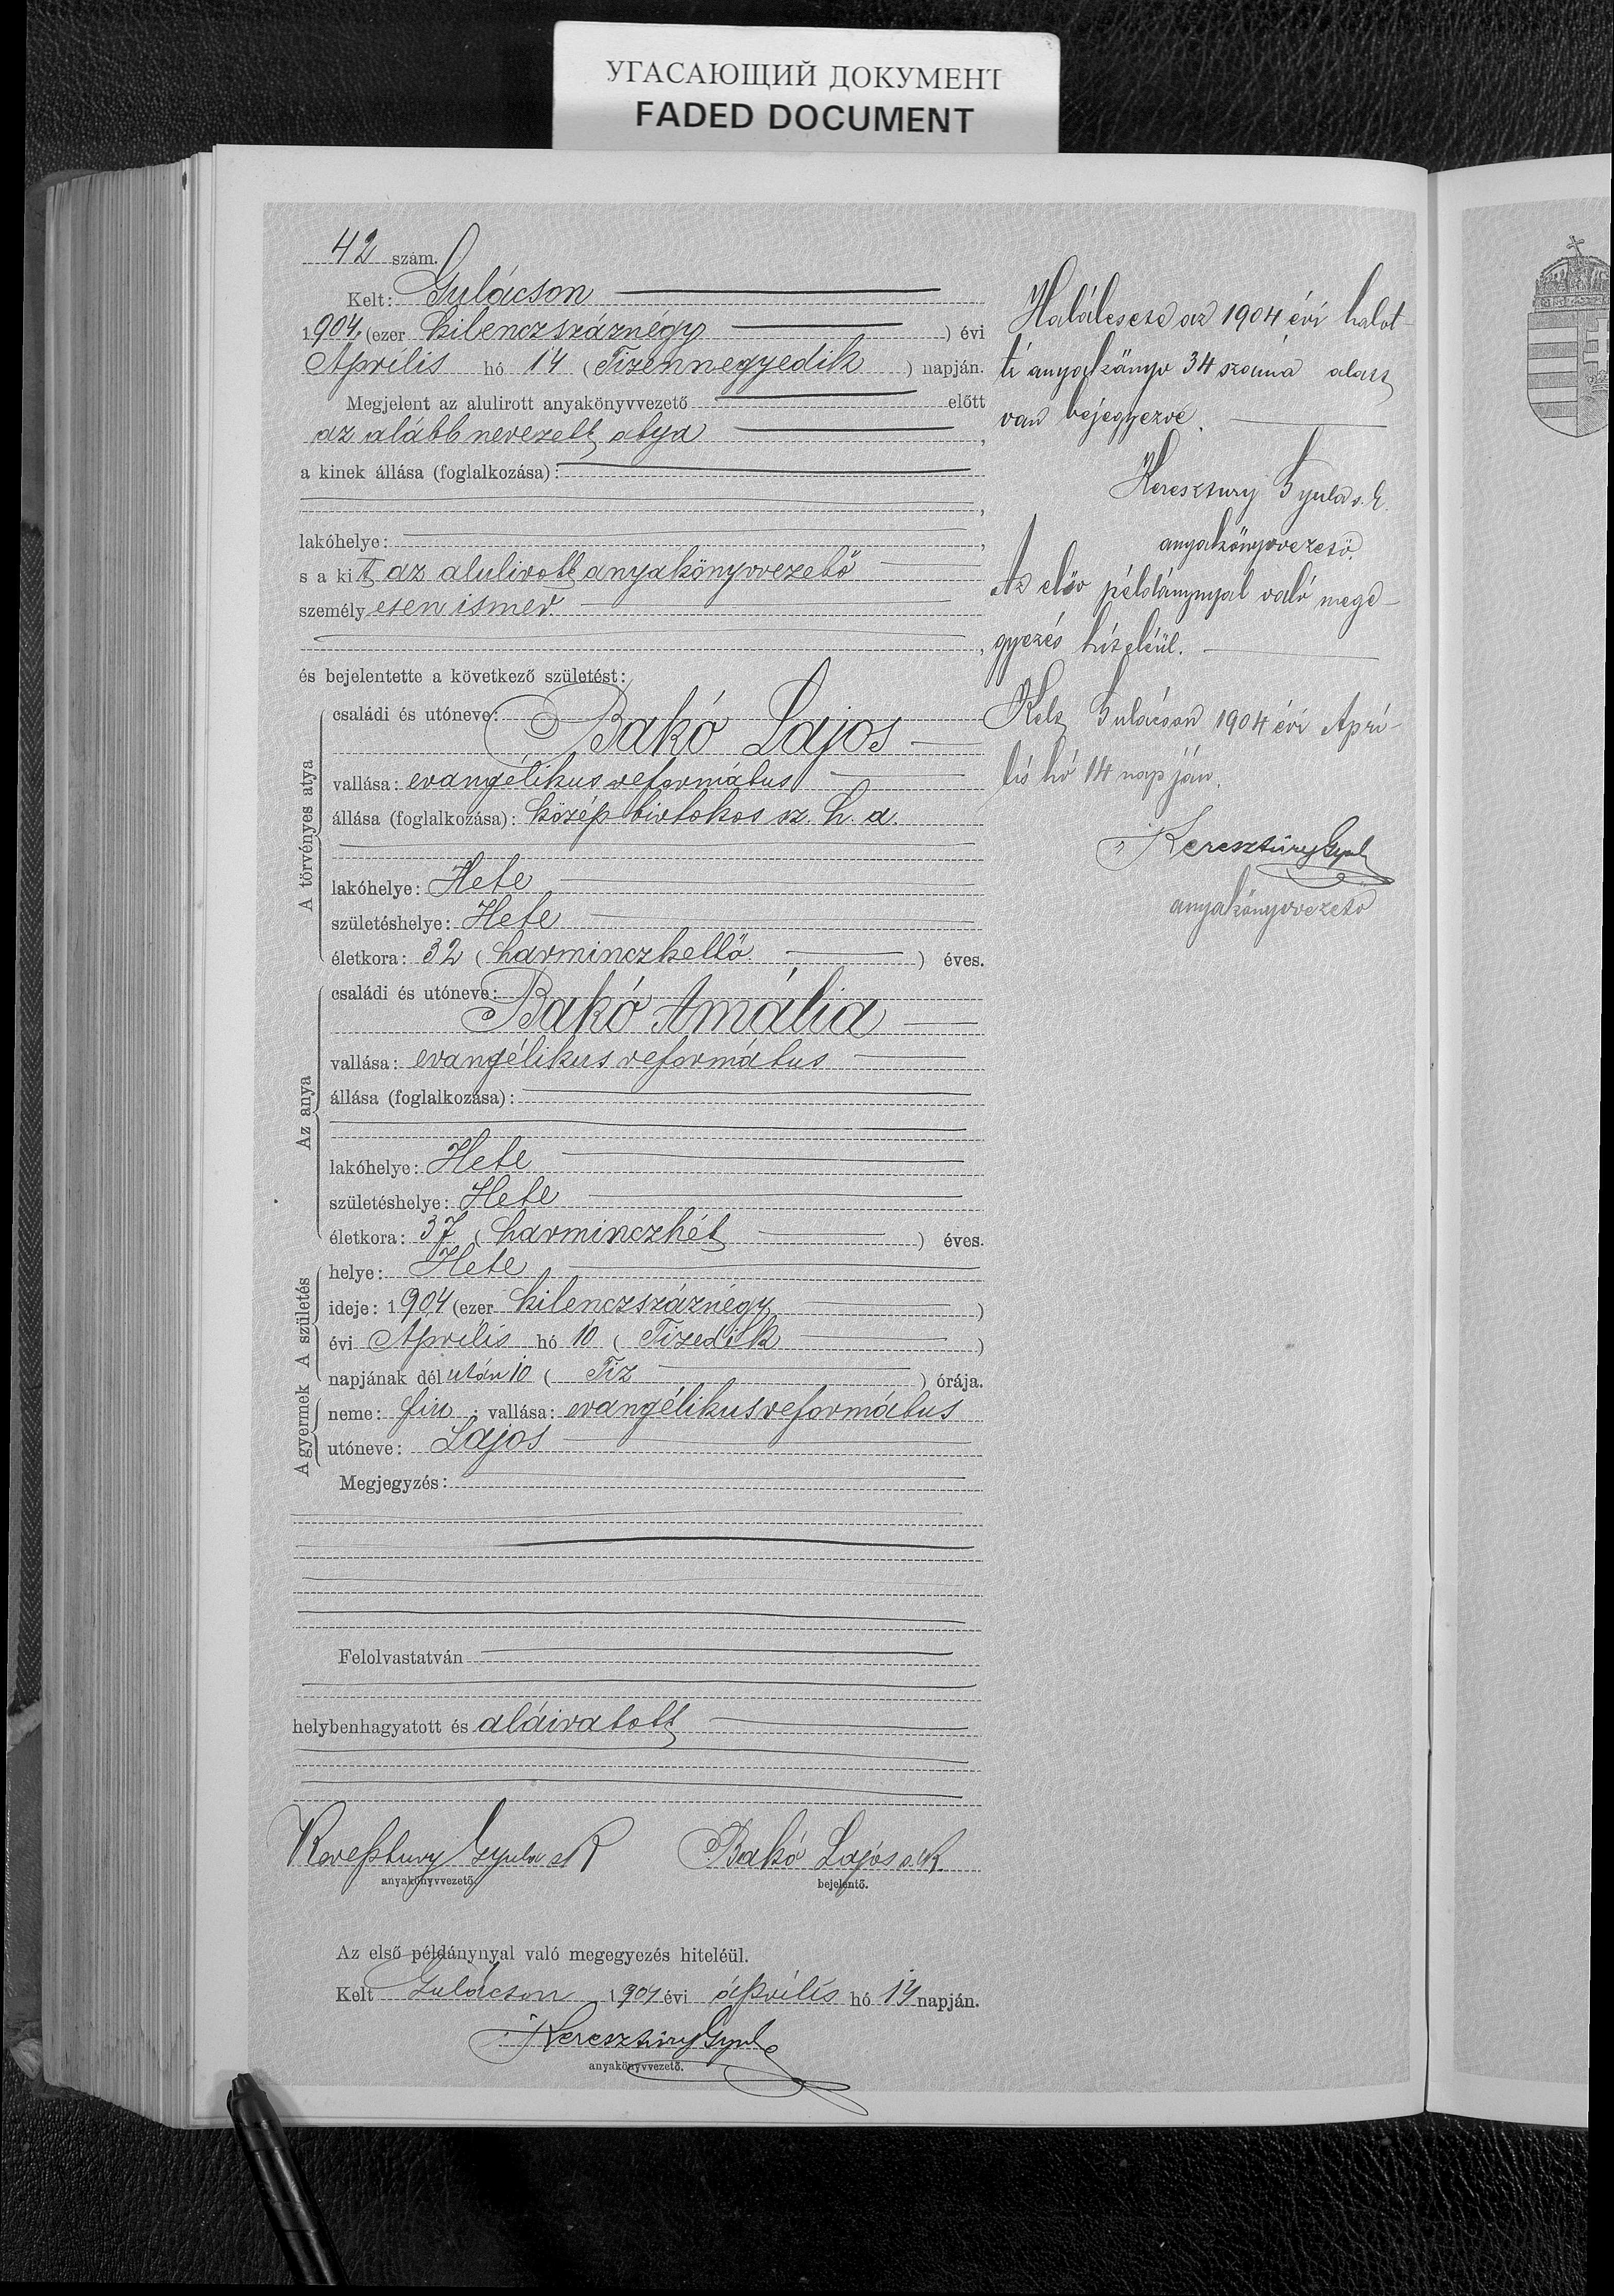 УГАСАЮЩИЙ ДОКУМЕНТ
FADED DOCUMENT
42 szám.
Kelt: Gulácson
1904. (ezer kilenczszáznégy ) évi
Április hó 14 (Tizennegyedik ) napján.
Megjelent az alulirott anyakönyvvezető előtt
az alább nevezett atya ,
a kinek állása (foglalkozása):
,
lakóhelye: ,
s a kit az alulirott anyakönyvvezető
személyesen ismer
,
és bejelentette a következő születést:
A törvényes atya
családi és utóneve:
Bakó Lajos
vallása: evangélikus református
állása (foglalkozása): közép birtokos sz. h. a.
lakóhelye: Hete
születéshelye: Hete
életkora: 32 (harminczkettő ) éves.
Az anya
családi és utóneve:
Bakó Amália
vallása: evangélikus református
állása (foglalkozása):
lakóhelye: Hete
születéshelye: Hete
életkora: 37 (harminczhét ) éves.
A születés
helye: Hete
ideje: 1904 (ezer kilenczszáznégy )
évi Április hó 10 (Tizedik )
napjának délután 10 (Tiz ) órája.
A gyermek
neme: fiu ; vallása: evangélikus református
utóneve: Lajos
Megjegyzés:
Felolvastatván
helybenhagyatott és aláiratott
Keresztury Gyula sk Bakó Lajos s.k.
anyakönyvvezető. bejelentő.
Az első példánynyal való megegyezés hiteléül.
Kelt Gulácson 1904 évi április hó 14 napján.
Keresztúry Gyula
anyakönyvvezető.
Halálesete az 1904 évi halot-
ti anyakönyv 34 száma alatt
van bejegyezve.
Keresztury Gyula s.k.
anyakönyvvezető.
Az első példánynyal való mege-
gyezés hiteléül.
Kelt Gulácson 1904 évi Ápri-
lis hó 14 napján.
Keresztúry Gyula
anyakönyvvezető